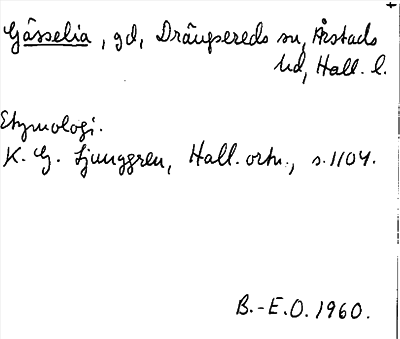 Gässelia, gd, Drängsereds sn, Årstads
hd, Hall. l.
Etymologi.
K. G. Ljunggren, Hall. ortn., s. 1104.
B.-E.O. 1960.